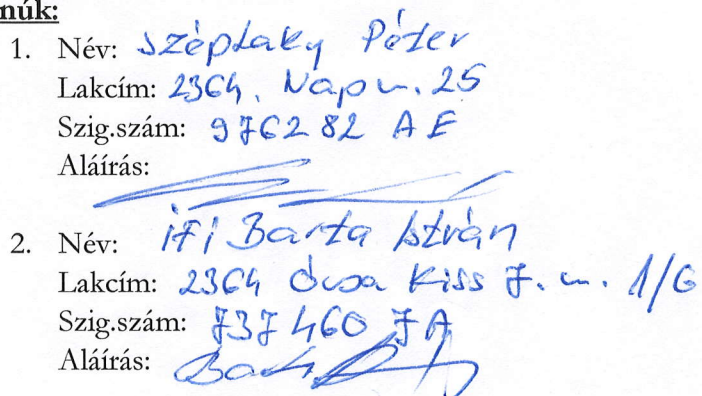 núk:
1. Név: Széplaky Péter
Lakcím: 2364, Nap u. 25
Szig.szám: 976282 AE
Aláírás:
2. Név: ifj Barta István
Lakcím: 2364 Ócsa Kiss J. u. 1/G
Szig.szám: 737460 JA
Aláírás: